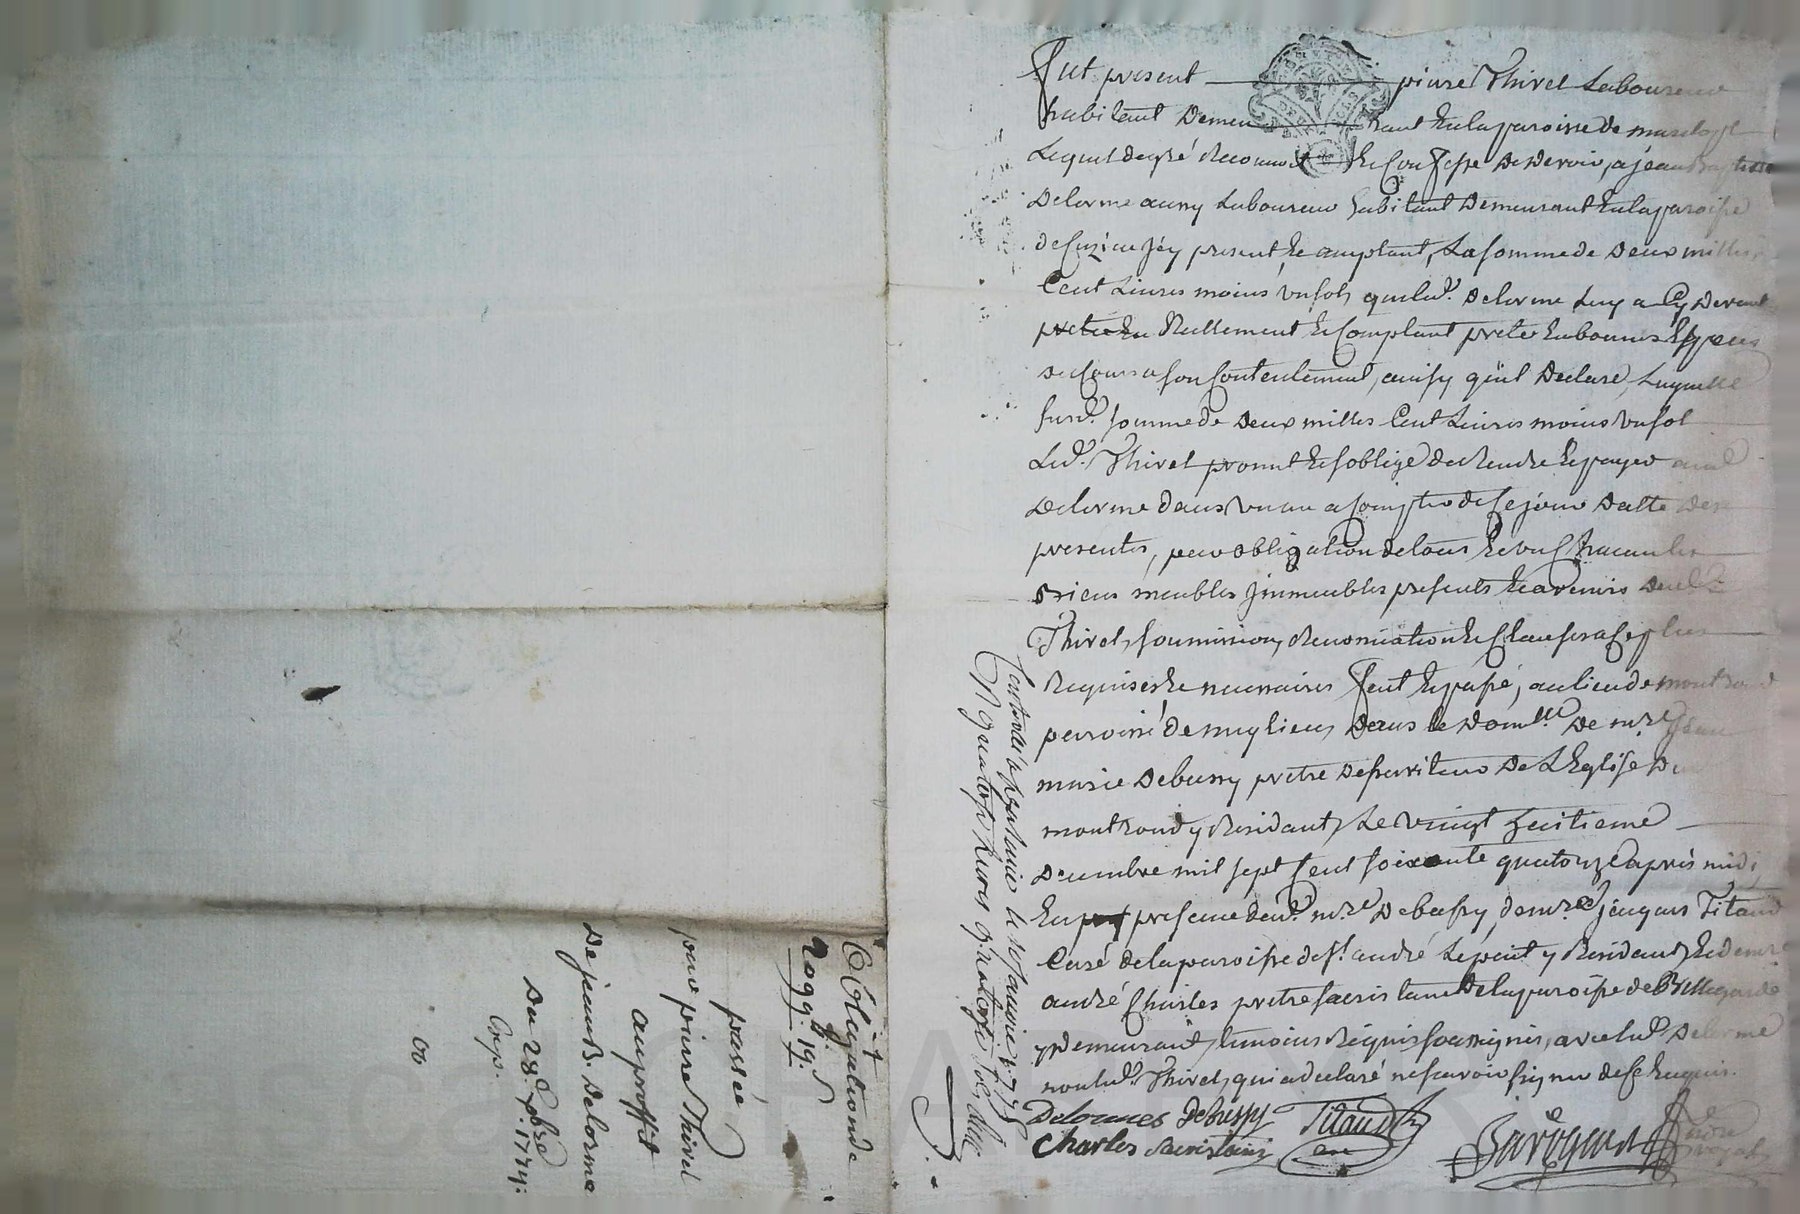 Fut present pierre Thivel Laboureur
habitant Demeurant En la paroisse de
Lequel de gré Reconnoit Et Confesse De Devoir, a jean Baptiste
Delorme aussy Laboureur habitant Demeurant En la paroisse
de jcy present Et acceptant, La somme de Deux milles
Cent Livres moins un sol, que led.t Delorme Luy a Cy Devant
Reellement Et Comptant preté En bonnes Especes
de Cours a son Contentement, ainsy qu'il Declare, Laquelle
susd.e somme de Deux milles Cent Livres moins un sol
Led.t Thivel promet Et s'oblige de Rendre Et payer aud.t
Delorme dans un an a Compter de Ce jour Datte Des
presentes, par obligation de tous Et un Chacun les
Biens meubles jmmeubles presents Et avenirs Dud.t
Thivel, soumission, Renonciation Et Clauses a Ce plus
Requises Et necessaires fait Et passé, au lieu de montrond
paroisse de meylieu, Dans le Dom.lle De m.re Jean
marie Debussy pretre Deserviteur De L'Eglise De
montrond y Residant, Le vingt huitieme
Decembre mil sept Cent soixante quatorze apres midi,
En presence dud.t m.re Debussy, de m.re jacques Titaud
Curé de la paroisse de s.t andré Le puit y Residant, Et de m.re
andré Charles pretre sacristain De la paroisse de Bellegarde
y Demeurant, temoins Requis soussignés, avec led.t Delorme
non led.t Thivel, qui a declaré ne scavoir signer de Ce Enquis.
Delormes Debussy Titaud
Charles sacristain curé
Controlé a le janvier 1775
R quatorze livres quatorze sols
Obligation de
2099# 19s
passée
par pierre Thivel
au proffit
De jean B. Delorme
Du 28e Xbre 1774.
Exp.